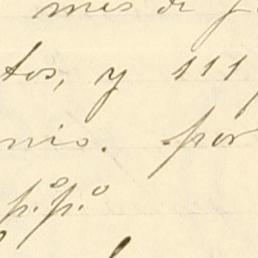 mes de J
tos, y 111
nio. por
p.º p.º